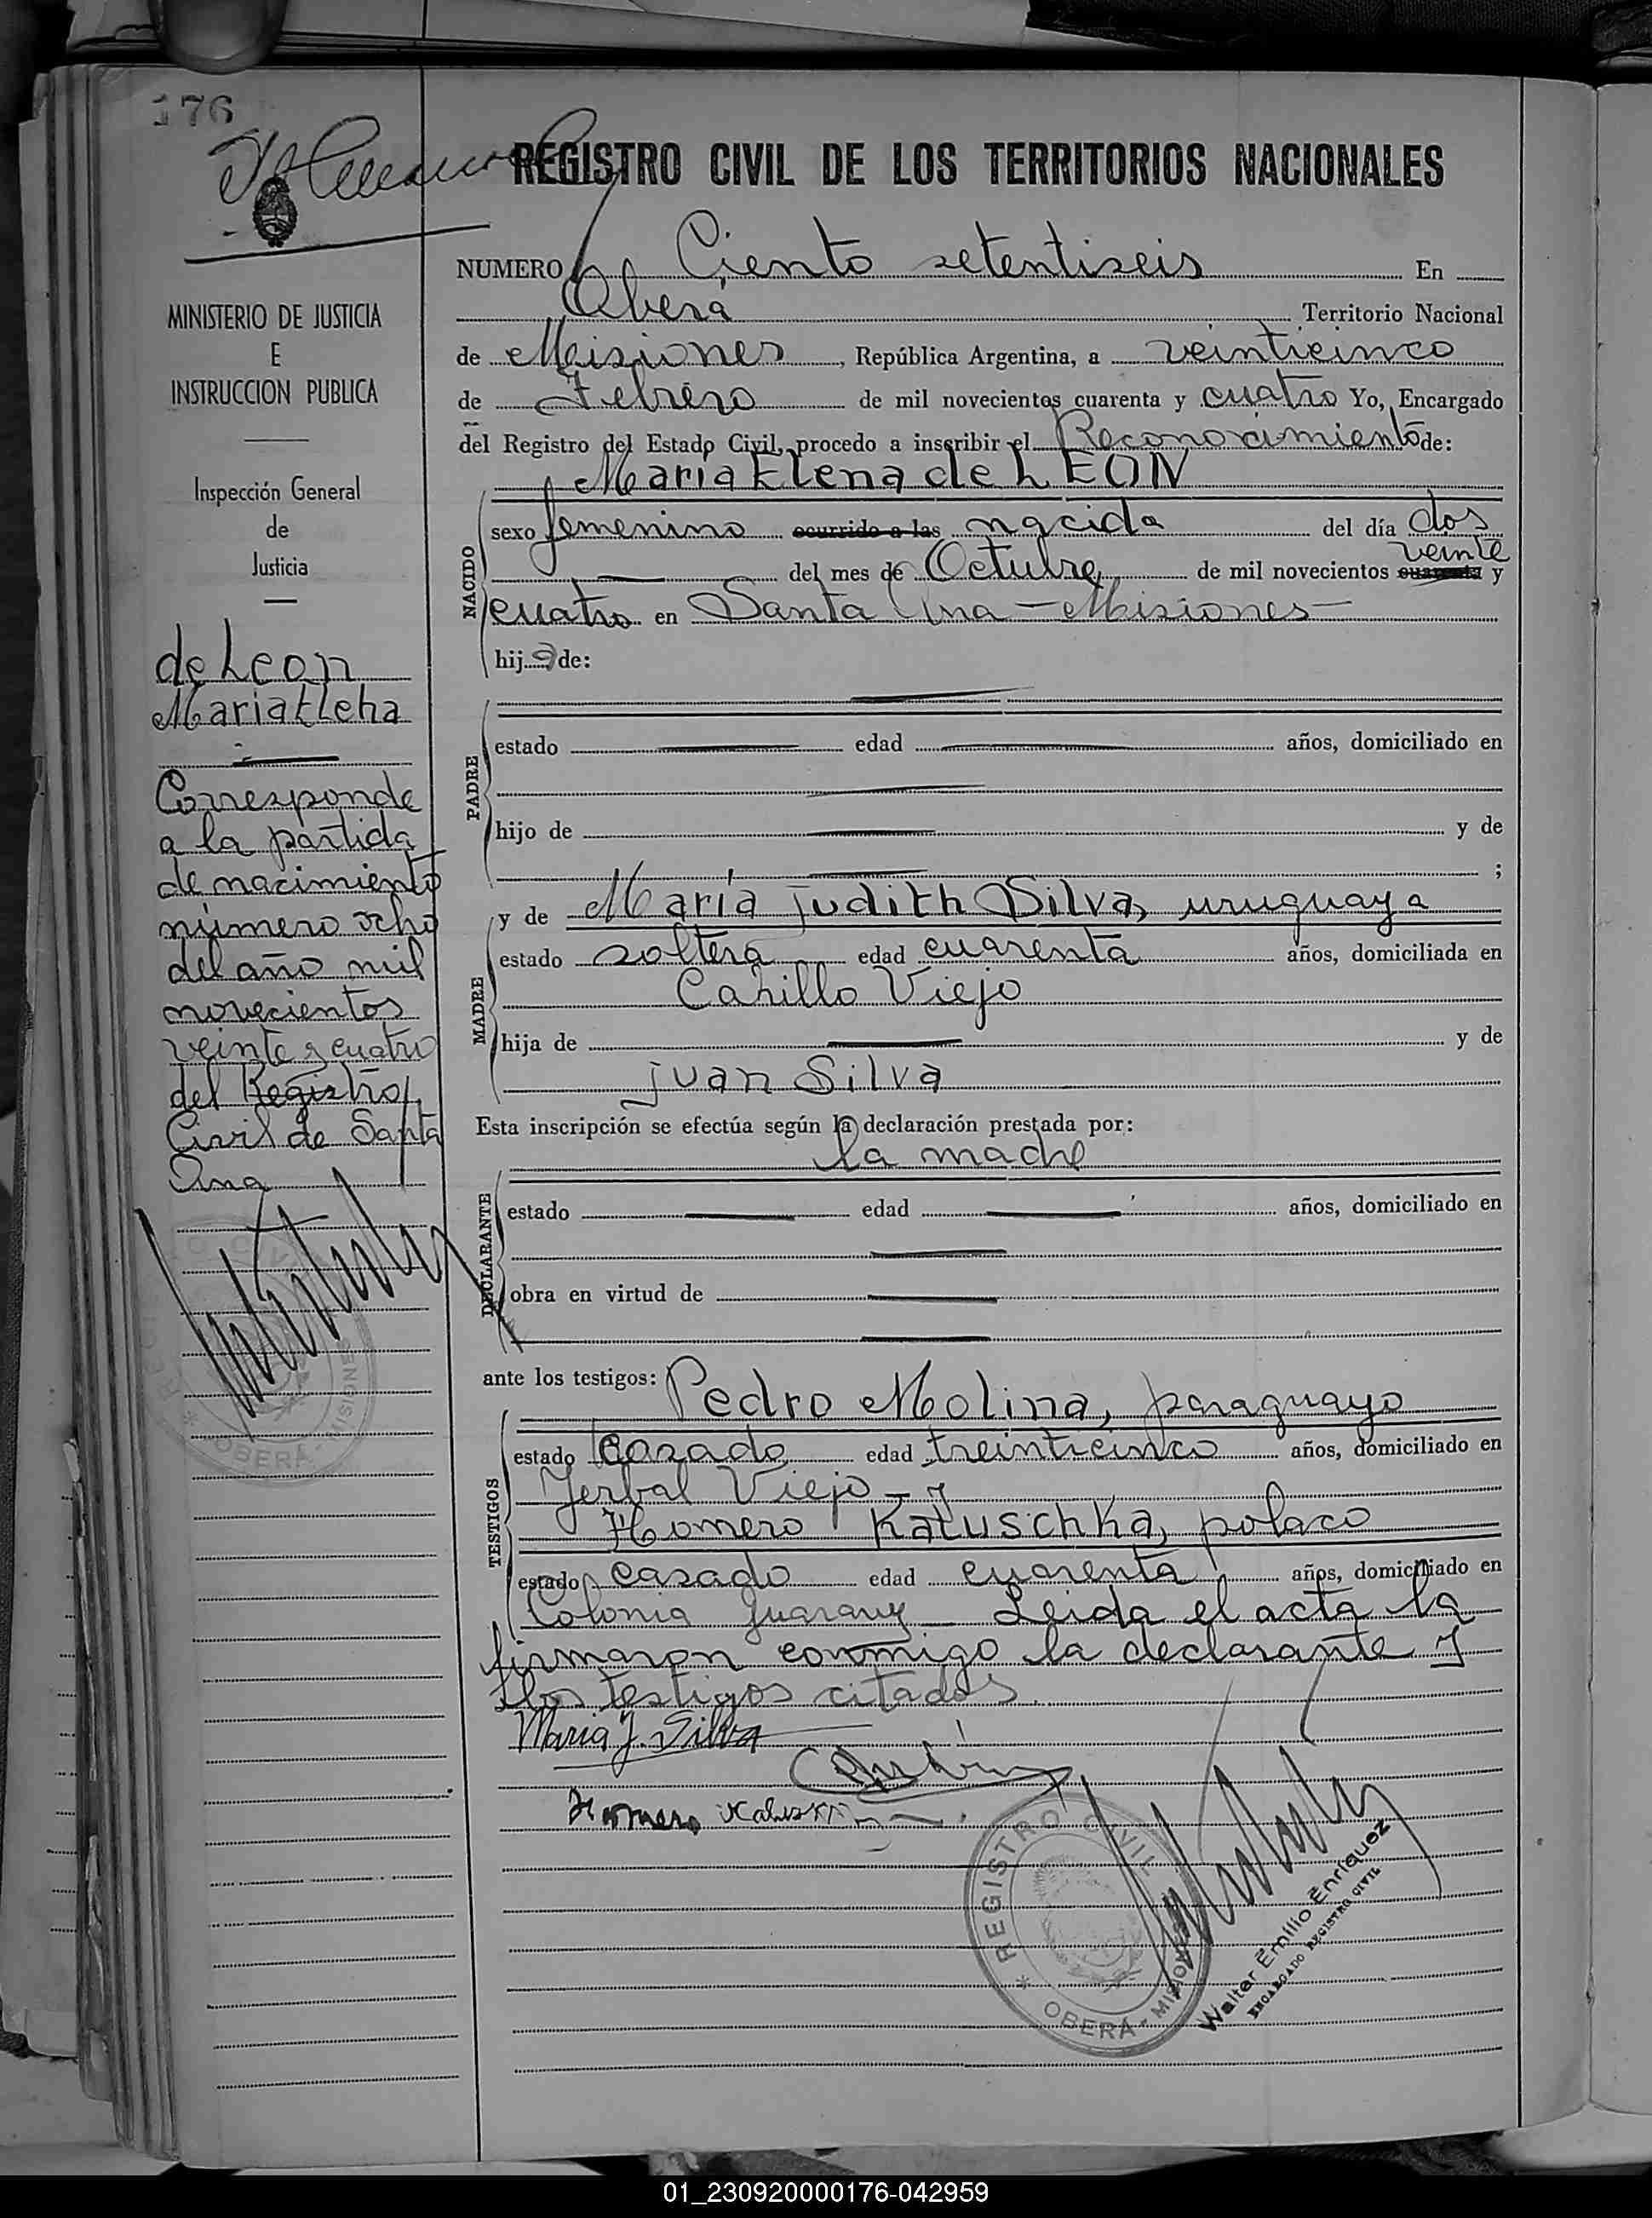 176
REGISTRO CIVIL DE LOS TERRITORIOS NACIONALES
MINISTERIO DE JUSTICIA
E
INSTRUCCION PUBLICA
Inspección General
de
Justicia
de Leon
Maria Elena
Corresponde
a la partida
de nacimiento
número ocho
del año mil
novecientos
veinte y cuatro
del Registro
Civil de Santa
Ana
NUMERO Ciento setentiseis En
Oberá Territorio Nacional
de Misiones, República Argentina, a veinticinco
de Febrero de mil novecientos cuarenta y cuatro Yo, Encargado
del Registro del Estado Civil, procedo a inscribir el Reconocimiento de:
Maria Elena de LEON
sexo femenino ocurrido a las nacida del día dos
veinte
del mes de Octubre, de mil novecientos cuarenta y
cuatro en Santa Ana - Misiones -
NACIDO
hija de:
estado edad años, domiciliado en
PADRE
hijo de y de
;
y de María Judith Silva, uruguaya
estado soltera edad cuarenta años, domiciliada en
Viejo
MADRE
hija de y de
Juan Silva
Esta inscripción se efectúa según la declaración prestada por:
la madre
DECLARANTE
estado edad años, domiciliado en
obra en virtud de
ante los testigos: Pedro Molina, paraguayo
estado casado edad treinticinco años, domiciliado en
Yerbal Viejo - y
TESTIGOS
Homero Katuschka, polaco
estado casado edad cuarenta años, domiciliado en
Colonia Guarany - Leida el acta la
firmaron conmigo la declarante y
los testigos citados.
Maria J. Silva
Homero
REGISTRO CIVIL
OBERÁ - MISIONES
Walter Emilio Enriquez
ENCARGADO REGISTRO CIVIL
01_230920000176-042959